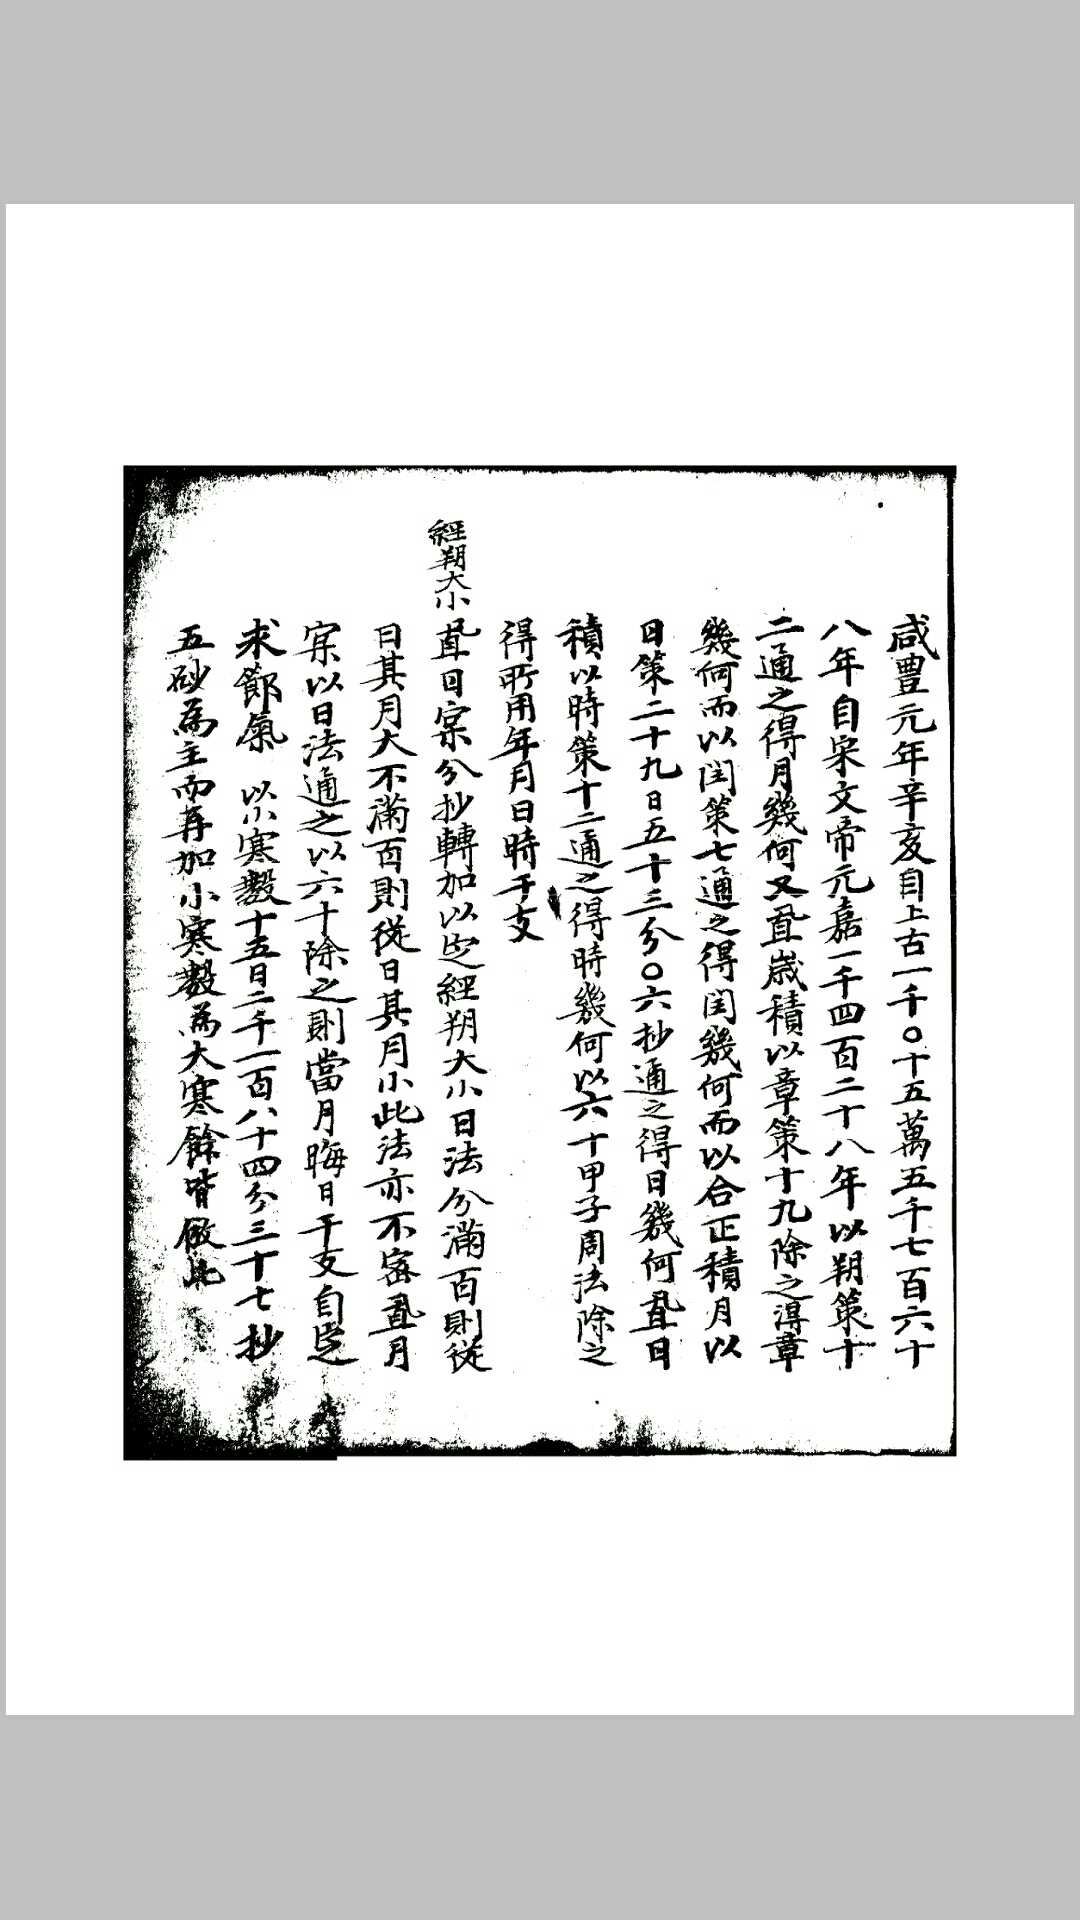 咸豐元年辛亥自上古一千〇十五萬五千七百六十
八年自宋文帝元嘉一千四百二十八年以朔策十
二通之得月幾何又置歲積以章策十九除之淂章
幾何而以閏策七通之得閏幾何而以合正積月以
日策二十九日五十三分〇六抄通之得日幾何置日
積以時策十二通之得時幾何以六十甲子周法除之
得所用年月日時干支
經朔大小置日宲分抄轉加以定經朔大小日法分滿百則従
日其月大不滿百則従日其月小此法亦不密置月
宲以日法通之以六十除之則當月晦日干支自定
求節氣 以小寒數十五日二千一百八十四分三十七抄
五砂為主而再加小寒數為大寒餘皆倣此